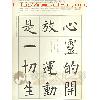 心靈的開
放運動
是一切生